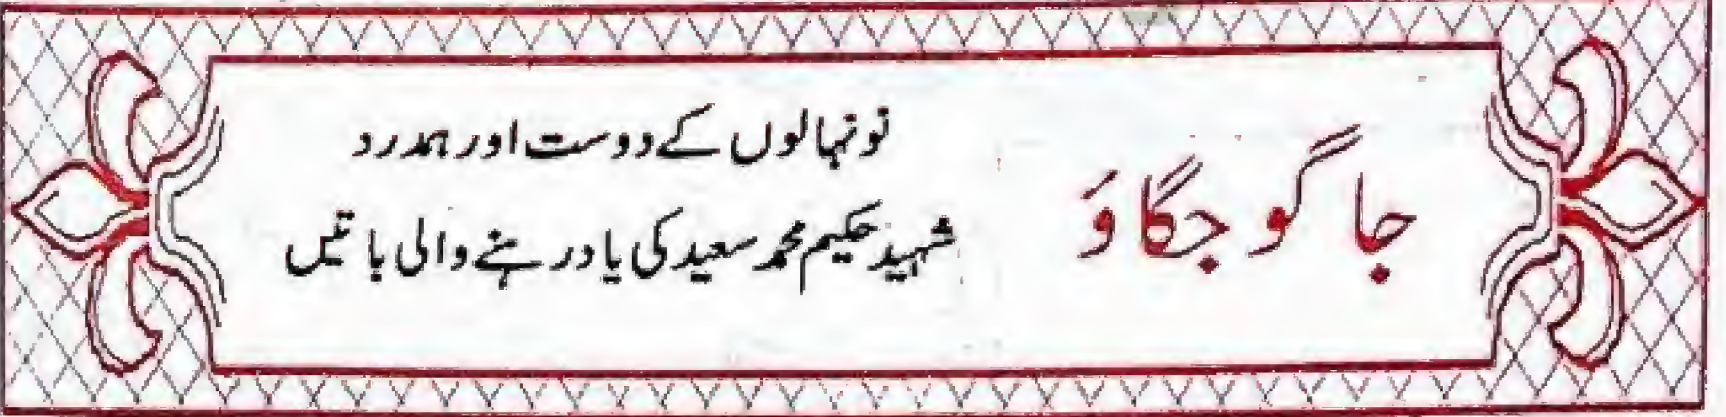 جاگو جگاوَ
نونہالوں کے دوست اور ہمدرد
شہید حکیم محمد سعید کی یاد رہنے والی باتیں